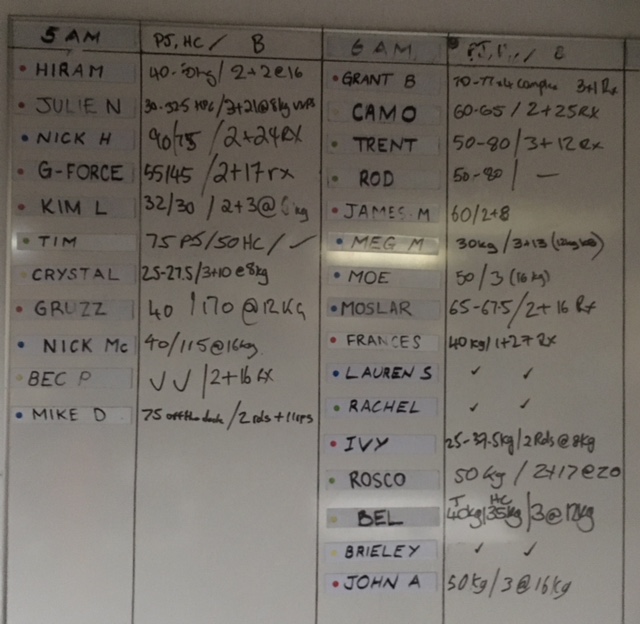 5 AM PJ, HC / B
HIRAM 40-50kg / 2+2@16
JULIE N 30-32.5 HPC / 3+21@8kg
NICK H 90/75 / 2+24RX
G-FORCE 55/45 / 2+17 rx
KIM L 32/30 / 2+3@ kg
TIM 75 PS/50HC / ✓
CRYSTAL 25-27.5/3+10@8kg
GRUZZ 40 / 170 @12KG
NICK Mc 40/115@16kg
BEC P ✓✓ / 2+16 RX
MIKE D 75 / 2 rds +11 reps
6 AM
GRANT B 70-77x4 complex 3+1 Rx
CAMO 60-65 / 2+25RX
TRENT 50-80 / 3+12 Rx
ROD 50-80 / —
JAMES M 60/2+8
MEG M 30kg / 3+13
MOE 50 / 3 (16 kg)
MOSLAR 65-67.5 / 2+16 Rx
FRANCES 40 kg / 1+27 Rx
LAUREN S ✓ ✓
RACHEL ✓ ✓
IVY 25-37.5kg / 2 Rds@8kg
ROSCO 50 kg / 2+17@20
BEL J 40kg / HC 35kg / 3@12kg
BRIELEY ✓ ✓
JOHN A 50kg / 3@16kg